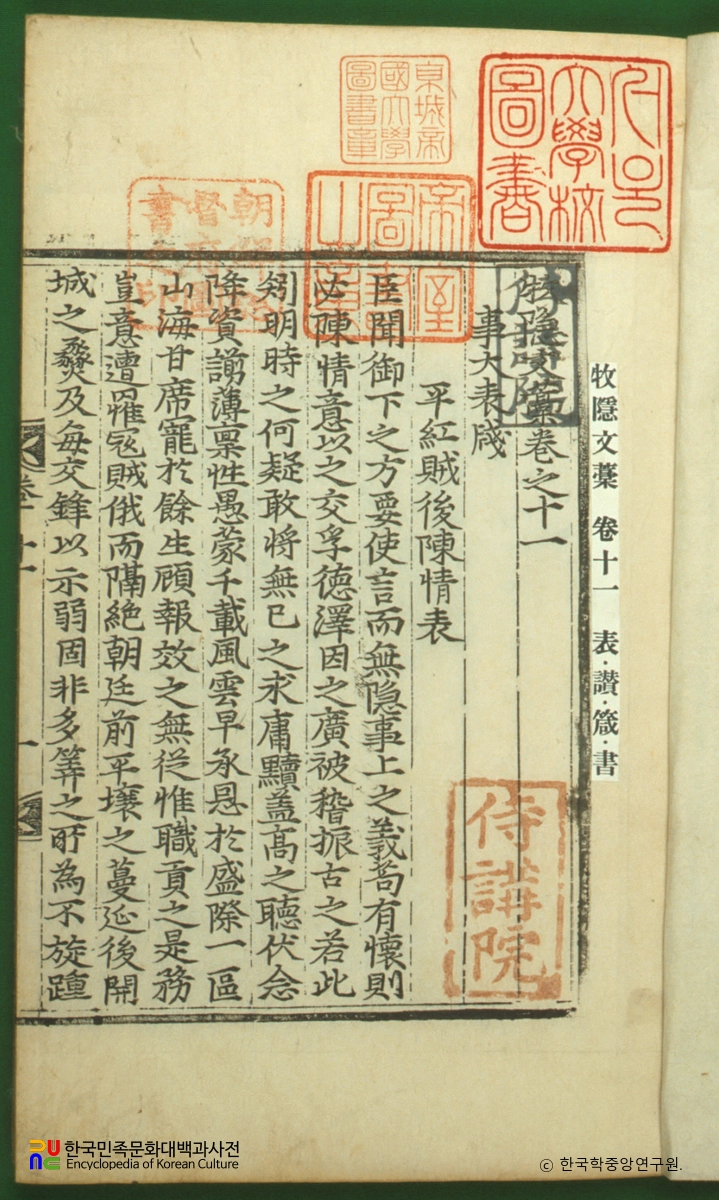 牧隱文藁 卷十一 表·讚·箴·書
牧隱文藁卷之十一
事大表牋
平紅賊後陳情表
臣聞御下之方要使言而無隐事上之義苟有懷則
必陳情意以之交孚德澤因之廣被稽振古之若此
矧明時之何疑敢将無已之求庸黷盖髙之聽伏念
資謭薄禀性愚蒙千載風雲早承恩於盛際一區
山海甘席寵於餘生頋報效之無従惟職貢之是務
豈意遭罹冦賊俄而隔絶朝廷前平壤之蔓延後開
城之及每交鋒以示弱固非多筭之所為不旋踵
卷十一
一
侍講院
大學校
圖書
京城帝
國大學
圖書章
帝室
圖書
之章
朝鮮總
督府圖
書之印
한국민족문화대백과사전
Encyclopedia of Korean Culture
© 한국학중앙연구원.